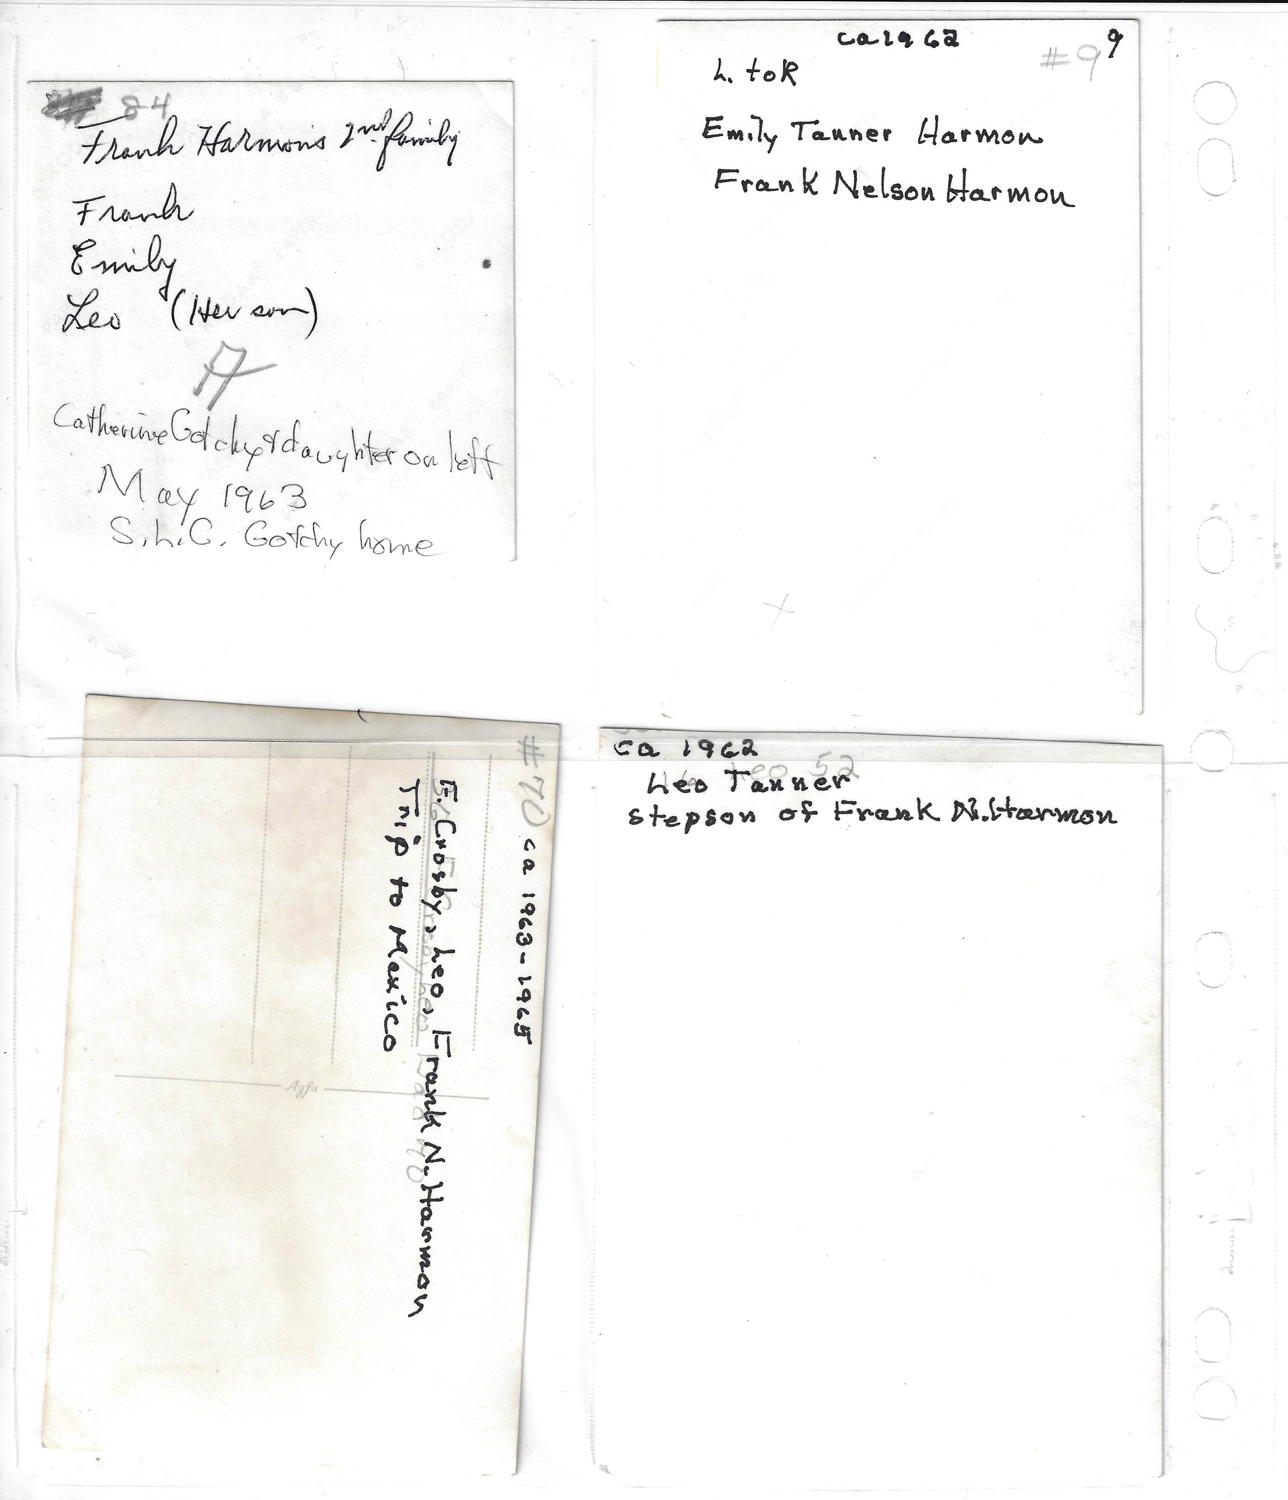 84
Frank Harmon's 2nd family
Frank
Emily
Leo (Her son)
A
Catherine Gotchy & daughter on left
May 1963
S.L.C. Gotchy home
ca 1962 9
#9
L. to R
Emily Tanner Harmon
Frank Nelson Harmon
#70 ca 1963-1965
E. Crosby, Leo, Frank N. Harmon
Trip to Mexico
Agfa
ca 1962
Leo 52
Leo Tanner
stepson of Frank N. Harmon